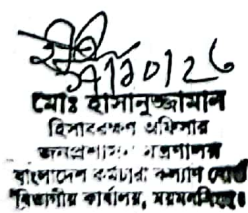 মোঃ হাসানুজ্জামান
হিসাবরক্ষণ অফিসার
জনপ্রশাসন মন্ত্রণালয়
বাংলাদেশ কর্মচারী কল্যাণ বোর্ড
বিভাগীয় কার্যালয়, ময়মনসিংহ।